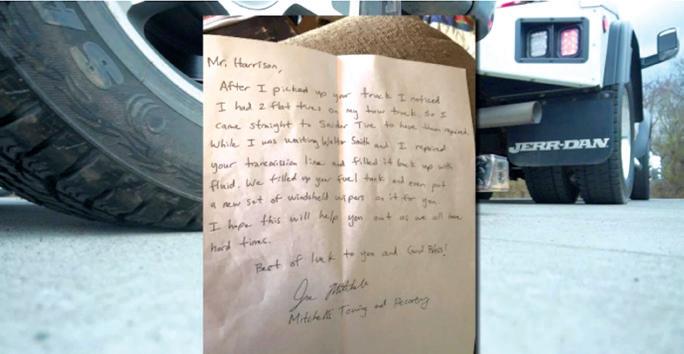 Mr. Harrison,
After I picked up your truck I noticed
I had 2 flat tires on my tow truck. So I
came straight to Snider Tire to have them repaired.
While I was waiting Walter Smith and I repaired
your transmission line and filled it back up with
fluid. We filled up your fuel tank and even put
a new set of windshield wipers on it for you.
I hope this will help you out as we all have
hard times.
Best of luck to you and God Bless!
Joe Mitchell
Mitchells Towing and Recovery
JERR-DAN